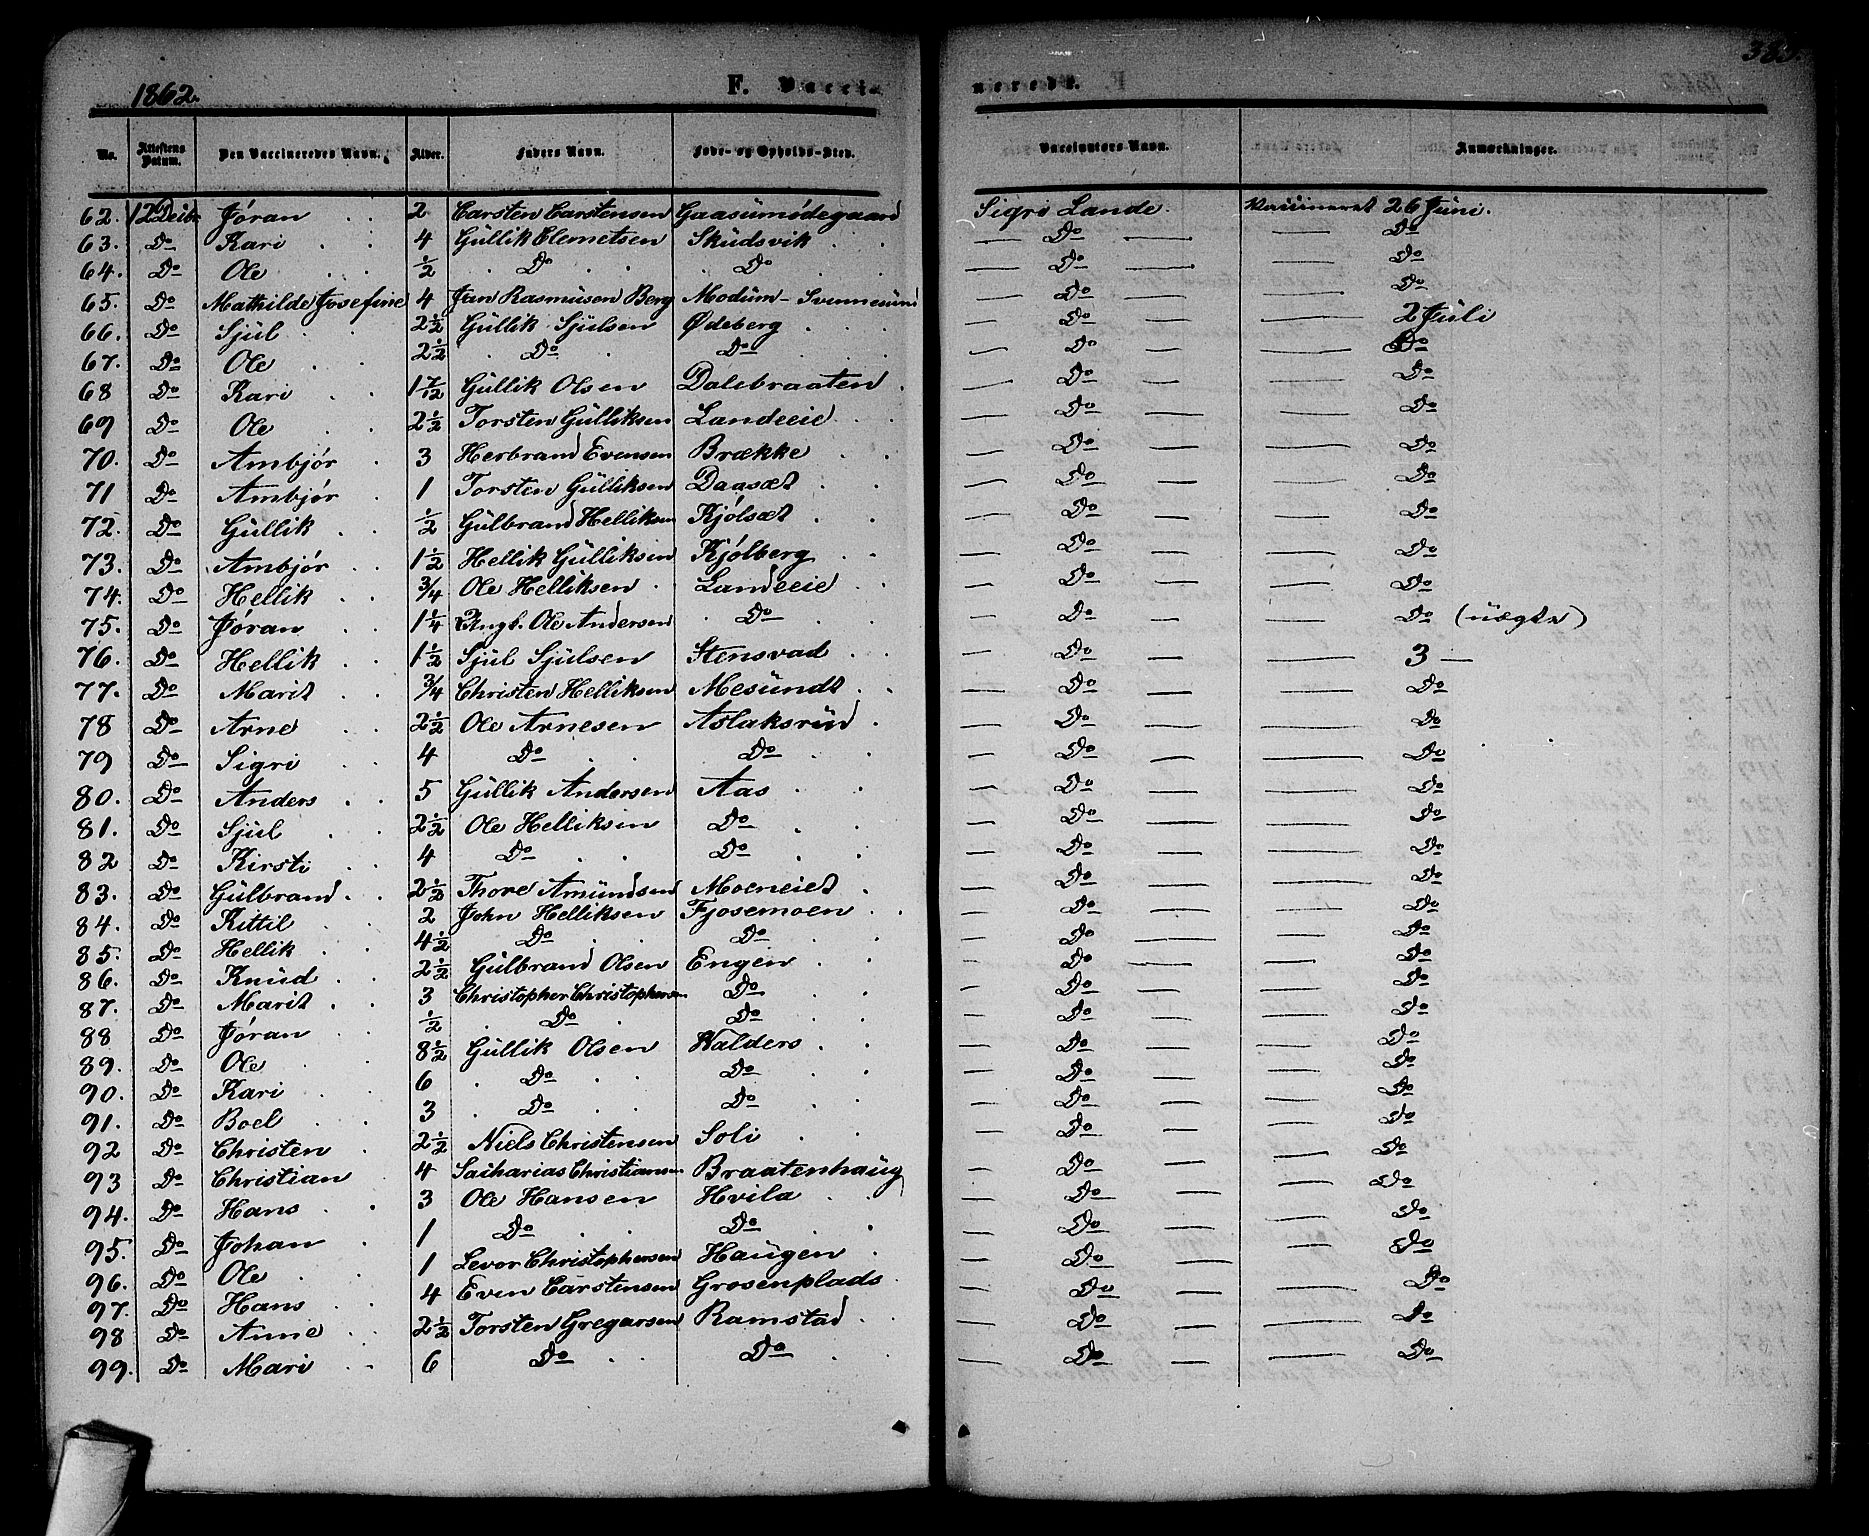 1862. F. Vacci-
nerede. 383.
No. Attestens Datum. Den Vaccineredes Navn. Alder. Faders Navn. Føde- og Opholds-Sted. Vaccinators Navn. Anmærkninger.
62. 12 Decbr Jøran 2 Carsten Carstensen Gaasumødegaard Sigri Lande. Vaccineret 26 Juni.
63. Do Kari 4 Güllik Clemetsen Sküdsvik — Do — — Do
64. Do Ole ½ Do Do — Do — — Do
65. Do Mathilde Josefine 4 Jan Rasmüsen Berg Modüm - Svennesünd — Do — — Do
66. Do Sjül 2½ Güllik Sjülsen Ødeberg — Do — — 2 Jüli
67. Do Ole 2½ Do Do — Do — — Do
68 Do Kari Güllik Olsen Dalebraaten — Do — — Do
69 Do Ole 2½ Torsten Gülliksen Landeeie — Do — — Do
70. Do Ambjør 3 Herbrand Evensen Brække — Do — — Do
71 Do Ambjør 1 Torsten Gülliksen Daasæt — Do — — Do
72. Do Güllik ½ Gülbrand Helliksen Kjølsæt — Do — — Do
73. Do Ambjør 1½ Hellik Gülliksen Kjølberg — Do — — Do
74. Do Hellik ¾ Ole Helliksen Landeeie — Do — — Do
75. Do Jøran 1¼ Ungk. Ole Andersen Do — Do — — Do (üægte)
76. Do Hellik 1½ Sjül Sjülsen Stensvad — Do — — 3 —
77. Do Marit ¾ Christen Helliksen Mesündt — Do — — Do
78 Do Arne 2½ Ole Arnesen Aslaksrüd — Do — — Do
79 Do Sigri 4 Do Do — Do — — Do
80. Do Anders 5 Güllik Andersen Aas — Do — — Do
81. Do Sjül 2½ Ole Helliksen Do — Do — — Do
82 Do Kirsti 4 Do Do — Do — — Do
83. Do Gülbrand 2½ Thore Amündsen Moeneiet — Do — — Do
84. Do Kittil 2 John Helliksen Fjosemoen — Do — — Do
85. Do Hellik 4½ Do Do — Do — — Do
86. Do Knüd 2½ Gülbrand Olsen Engen — Do — — Do
87. Do Marit 3 Christopher Christophersen Do — Do — — Do
88 Do Jøran ½ Do Do — Do — — Do
89. Do Ole 8½ Güllik Olsen Valders — Do — — Do
90. Do Kari 6 Do Do — Do — — Do
91. Do Boel 3 Do Do — Do — — Do
92 Do Christen 2½ Niels Christensen Soli — Do — — Do
93 Do Christian 4 Sacharias Christiansen Braatenhaüg — Do — — Do
94. Do Hans 3 Ole Hansen Hvila — Do — — Do
95. Do Johan 1 Do Do — Do — — Do
96. Do Ole 1 Levor Christophersen Haügen — Do — — Do
97. Do Hans 4 Even Carstensen Grosenplads — Do — — Do
98 Do Anne 2½ Torsten Gregarsen Ramstad — Do — — Do
99. Do Mari 6 Do Do — Do — — Do